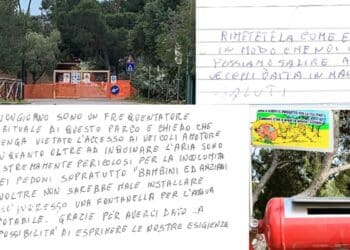 RIMETTETELA COME E
IN MODO CHE NOI
POSSIAMO SALIRE A
VECCHI
SALUTI
BUONGIORNO SONO UN FREQUENTATORE
ABITUALE DI QUESTO PARCO E CHIEDO CHE
VENGA VIETATO L'ACCESSO AI VEICOLI AMOTORE
IN QUANTO OLTRE AD INQUINARE L'ARIA SONO
ESTREMAMENTE PERICOLOSI PER LA INCOLUMITA
DEI PEDONI SOPRATUTTO "BAMBINI ED ANZIANI
INOLTRE NON SAREBBE MALE INSTALLARE
ALL'INGRESSO UNA FONTANELLA PER L'ACQUA
POTABILE. GRAZIE PER AVERCI DATO LA
POSSIBILITA' DI ESPRIMERE LE NOSTRE ESIGIENZE